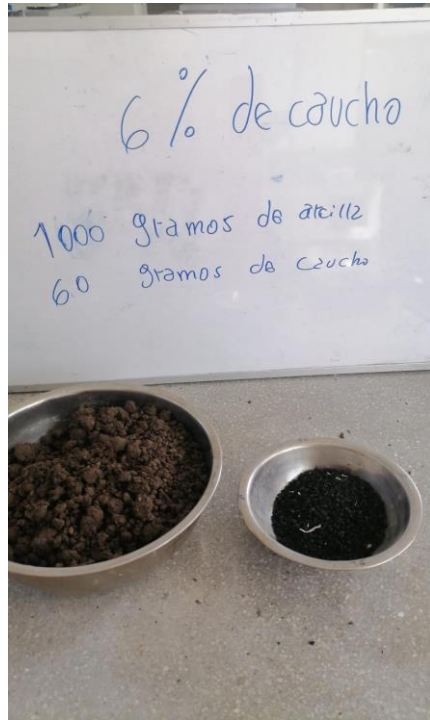 6 % de caucho
1000 gramos de arcilla
60 gramos de caucho